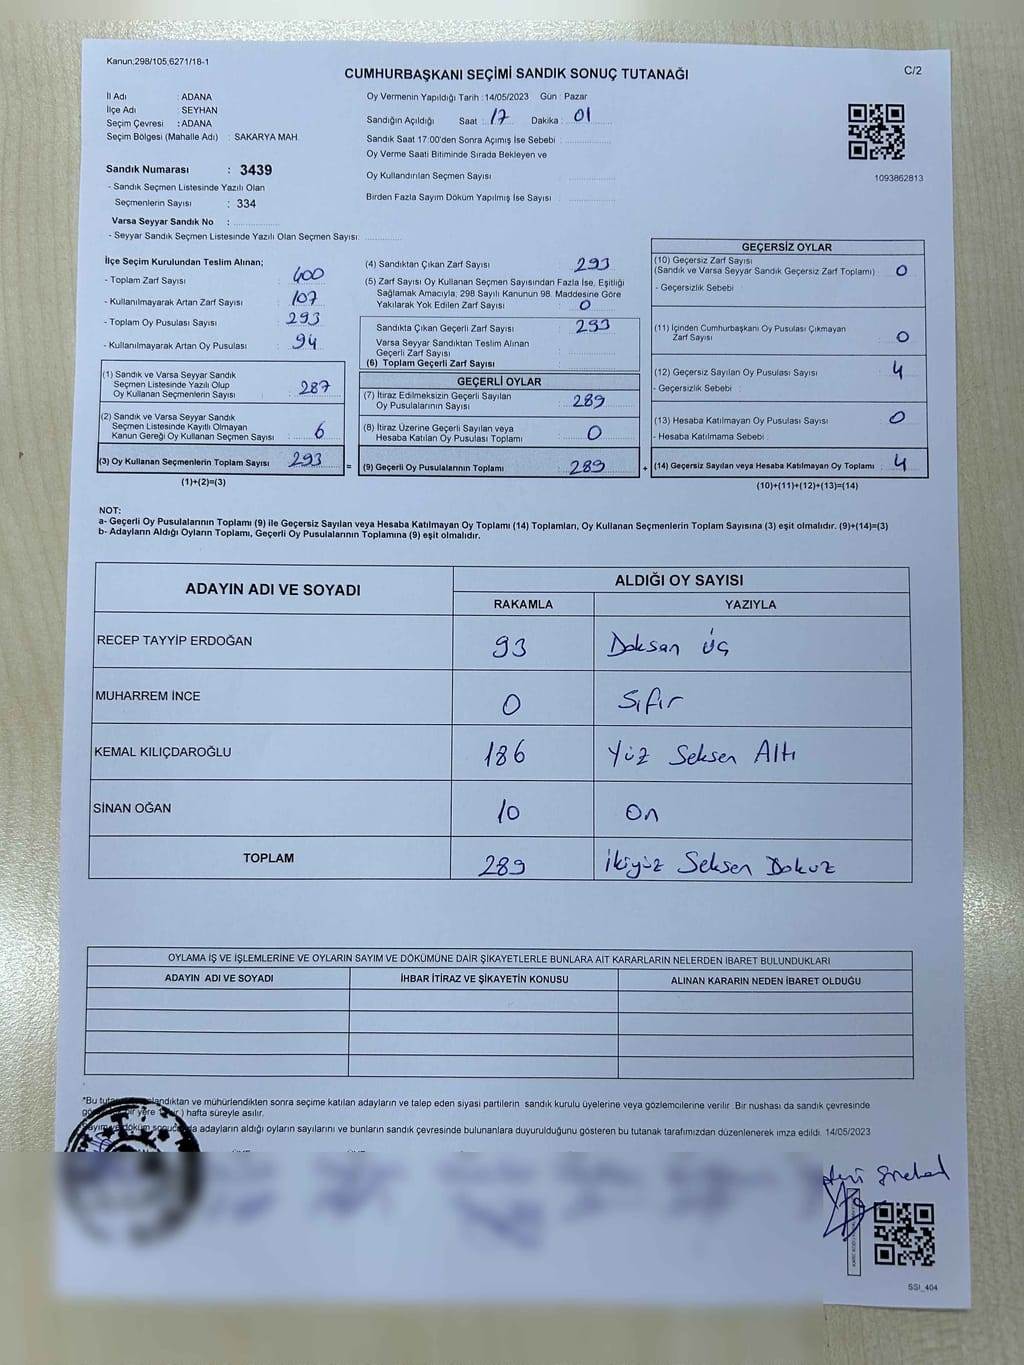 Kanun;298/105,6271/18-1
CUMHURBAŞKANI SEÇİMİ SANDIK SONUÇ TUTANAĞI
C/2
İl Adı : ADANA
İlçe Adı : SEYHAN
Seçim Çevresi : ADANA
Seçim Bölgesi (Mahalle Adı) : SAKARYA MAH.
Oy Vermenin Yapıldığı Tarih : 14/05/2023 Gün : Pazar
Sandığın Açıldığı Saat : 17 Dakika : 01
Sandık Saat 17:00'den Sonra Açımış İse Sebebi :
Oy Verme Saati Bitiminde Sırada Bekleyen ve
Oy Kullandırılan Seçmen Sayısı
Birden Fazla Sayım Döküm Yapılmış İse Sayısı :
1093862813
Sandık Numarası : 3439
- Sandık Seçmen Listesinde Yazılı Olan
Seçmenlerin Sayısı : 334
Varsa Seyyar Sandık No :
- Seyyar Sandık Seçmen Listesinde Yazılı Olan Seçmen Sayısı:
İlçe Seçim Kurulundan Teslim Alınan;
- Toplam Zarf Sayısı : 400
- Kullanılmayarak Artan Zarf Sayısı : 107
- Toplam Oy Pusulası Sayısı : 293
- Kullanılmayarak Artan Oy Pusulası : 94
(1) Sandık ve Varsa Seyyar Sandık
Seçmen Listesinde Yazılı Olup
Oy Kullanan Seçmenlerin Sayısı : 287
(2) Sandık ve Varsa Seyyar Sandık
Seçmen Listesinde Kayıtlı Olmayan
Kanun Gereği Oy Kullanan Seçmen Sayısı : 6
(3) Oy Kullanan Seçmenlerin Toplam Sayısı : 293
(1)+(2)=(3)
=
(4) Sandıktan Çıkan Zarf Sayısı : 293
(5) Zarf Sayısı Oy Kullanan Seçmen Sayısından Fazla İse, Eşitliği
Sağlamak Amacıyla; 298 Sayılı Kanunun 98. Maddesine Göre
Yakılarak Yok Edilen Zarf Sayısı : 0
Sandıkta Çıkan Geçerli Zarf Sayısı : 293
Varsa Seyyar Sandıktan Teslim Alınan
Geçerli Zarf Sayısı :
(6) Toplam Geçerli Zarf Sayısı :
GEÇERLİ OYLAR
(7) İtiraz Edilmeksizin Geçerli Sayılan
Oy Pusulalarının Sayısı : 289
(8) İtiraz Üzerine Geçerli Sayılan veya
Hesaba Katılan Oy Pusulası Toplamı : 0
(9) Geçerli Oy Pusulalarının Toplamı : 289
+
GEÇERSİZ OYLAR
(10) Geçersiz Zarf Sayısı
(Sandık ve Varsa Seyyar Sandık Geçersiz Zarf Toplamı) : 0
- Geçersizlik Sebebi :
(11) İçinden Cumhurbaşkanı Oy Pusulası Çıkmayan
Zarf Sayısı : 0
(12) Geçersiz Sayılan Oy Pusulası Sayısı : 4
- Geçersizlik Sebebi :
(13) Hesaba Katılmayan Oy Pusulası Sayısı : 0
- Hesaba Katılmama Sebebi :
(14) Geçersiz Sayılan veya Hesaba Katılmayan Oy Toplamı : 4
(10)+(11)+(12)+(13)=(14)
NOT:
a- Geçerli Oy Pusulalarının Toplamı (9) ile Geçersiz Sayılan veya Hesaba Katılmayan Oy Toplamı (14) Toplamları, Oy Kullanan Seçmenlerin Toplam Sayısına (3) eşit olmalıdır. (9)+(14)=(3)
b- Adayların Aldığı Oyların Toplamı, Geçerli Oy Pusulalarının Toplamına (9) eşit olmalıdır.
ADAYIN ADI VE SOYADI
ALDIĞI OY SAYISI
RAKAMLA YAZIYLA
RECEP TAYYİP ERDOĞAN 93 Doksan üç
MUHARREM İNCE 0 Sıfır
KEMAL KILIÇDAROĞLU 186 Yüz Seksen Altı
SİNAN OĞAN 10 On
TOPLAM 289 İkiyüz Seksen Dokuz
OYLAMA İŞ VE İŞLEMLERİNE VE OYLARIN SAYIM VE DÖKÜMÜNE DAİR ŞİKAYETLERLE BUNLARA AİT KARARLARIN NELERDEN İBARET BULUNDUKLARI
ADAYIN ADI VE SOYADI İHBAR İTİRAZ VE ŞİKAYETİN KONUSU ALINAN KARARIN NEDEN İBARET OLDUĞU
*Bu ve mühürlendikten sonra seçime katılan adayların ve talep eden siyasi partilerin sandık kurulu üyelerine veya gözlemcilerine verilir. Bir nüshası da sandık çevresinde
bir yere hafta süreyle asılır.
adayların aldığı oyların sayılarını ve bunların sandık çevresinde bulunanlara duyurulduğunu gösteren bu tutanak tarafımızdan düzenlenerek imza edildi. 14/05/2023
SSI_404